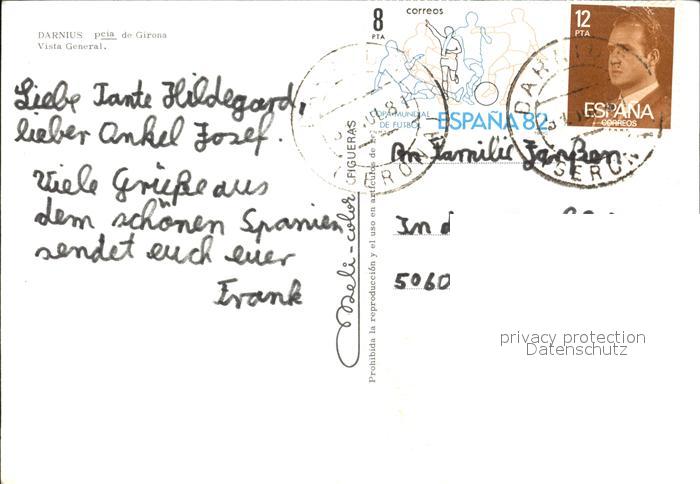 DARNIUS pcia de Girona
Vista General.
Liebe Tante Hildegard,
lieber Onkel Josef.
Viele Grüße aus
dem schönen Spanien
sendet euch euer
Frank
Deli-color
FIGUERAS
Prohibida la reproducción y el uso en artículos de
8
PTA
correos
COPA MUNDIAL
DE FUTBOL
ESPAÑA 82
12
PTA
ESPAÑA
CORREOS
DARNIUS
GERONA
An Familie Janßen
In d
5060
privacy protection
Datenschutz